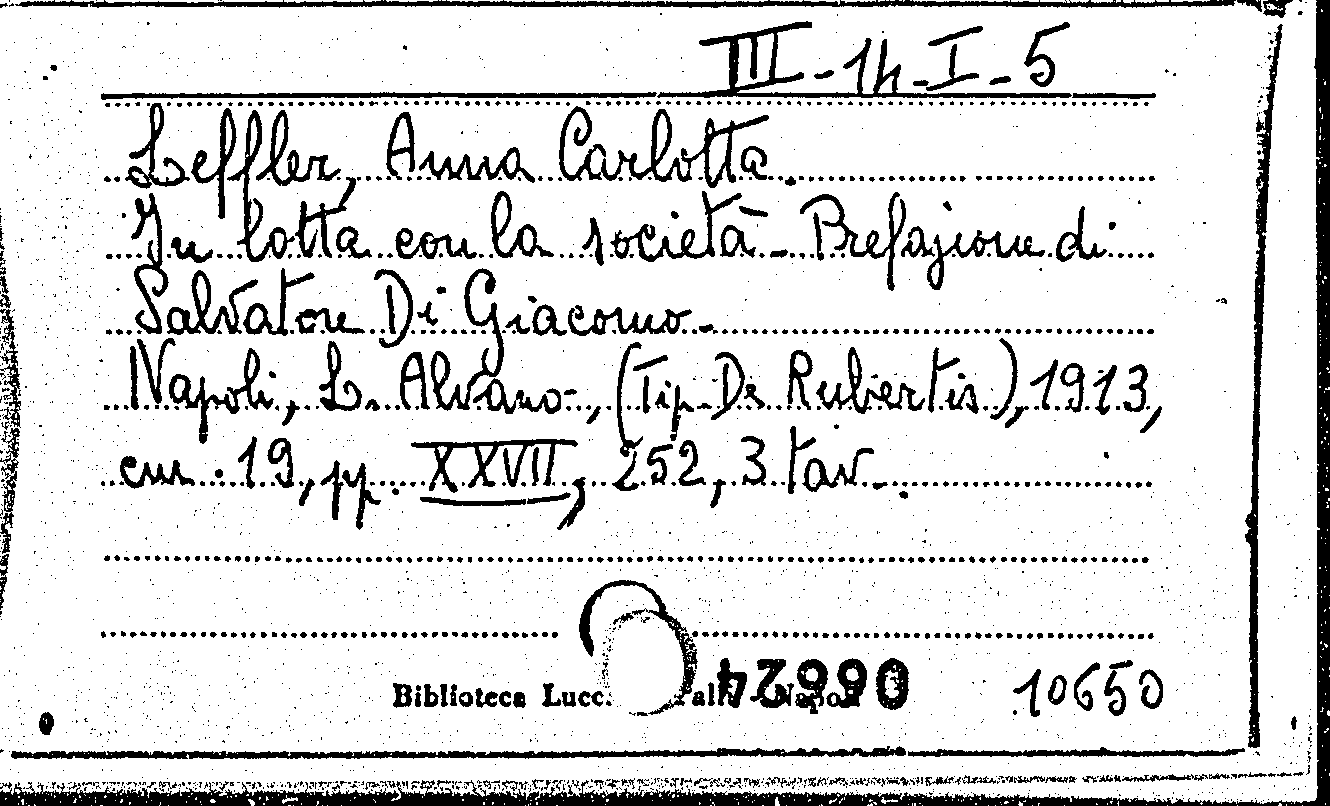 III-14-I-5
Leffler, Anna Carlotta.
In lotta con la società - Prefazione di
Salvatore Di Giacomo -
Napoli, L. Alvano -, (Tip. De Rubertis), 1913,
cm. 19, pp. XXVII, 252, 3 tav -.
Biblioteca Napoli
06624
10650